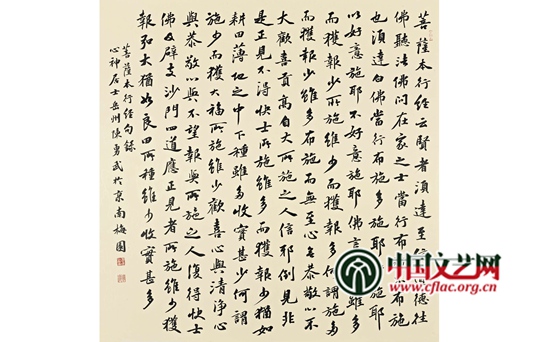 菩薩本行经云賢者湏達至德往
佛聽法佛問在家之士當行布布施
也湏達白佛當行布施多施耶施耶
以好意施耶不好意施耶佛言雖多
而獲報少所施雖少而獲報多何謂施多
而獲報少雖多布施而無至心無恭敬以不
大歡喜貢高自大所施之人信耶倒見非
是正見不得快士所施雖多而獲報少猶如
耕田薄地之中下種雖多收實甚少何謂
施少而獲大福所施雖少歡喜心與清淨心
與恭敬心與不望報與所施之人復得快士
佛及辟支沙門四道應正見者所施雖少獲
報弘大猶如良田所種雖少收實甚多
菩薩本行经句録
心神居士岳州陳勇武於京南梅園
中国文艺网
www.cflac.org.cn